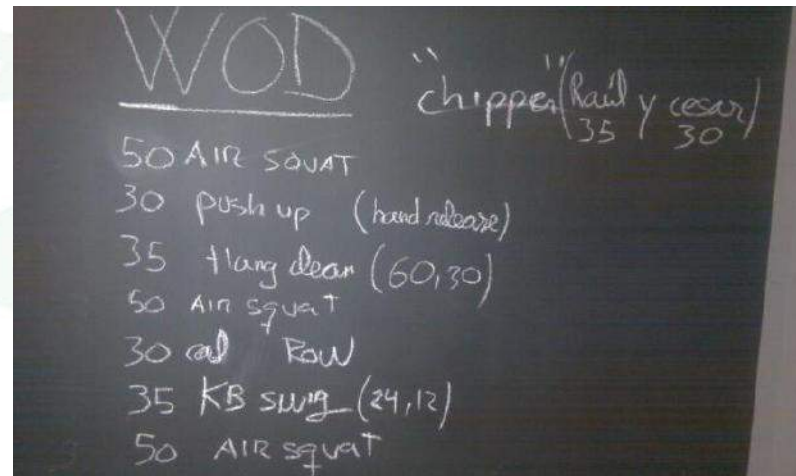 WOD
"chipper" (Raúl y cesar)
35 30
50 AIR SQUAT
30 push up (hand release)
35 Hang clean (60,30)
50 AIR squat
30 cal ROW
35 KB swig (24,12)
50 AIR squat